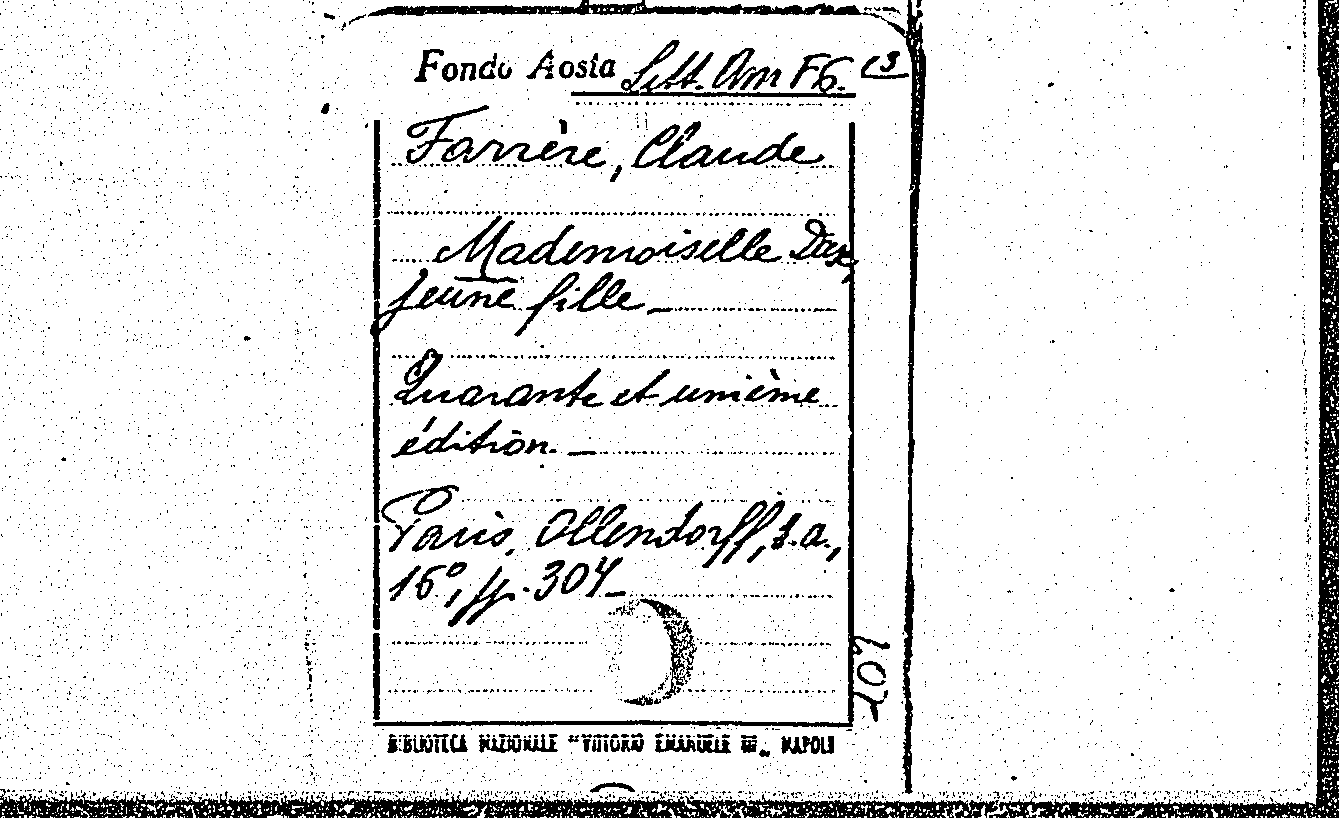 Fondo Aosta Lett. Am F6. (3
Farrère, Claude
Mademoiselle Dax,
jeune fille_
Quarante et unième
édition._
Paris, Ollendorff, s.a.,
16°, pp. 304_
BIBLIOTECA NAZIONALE "VITTORIO EMANUELE III„ NAPOLI